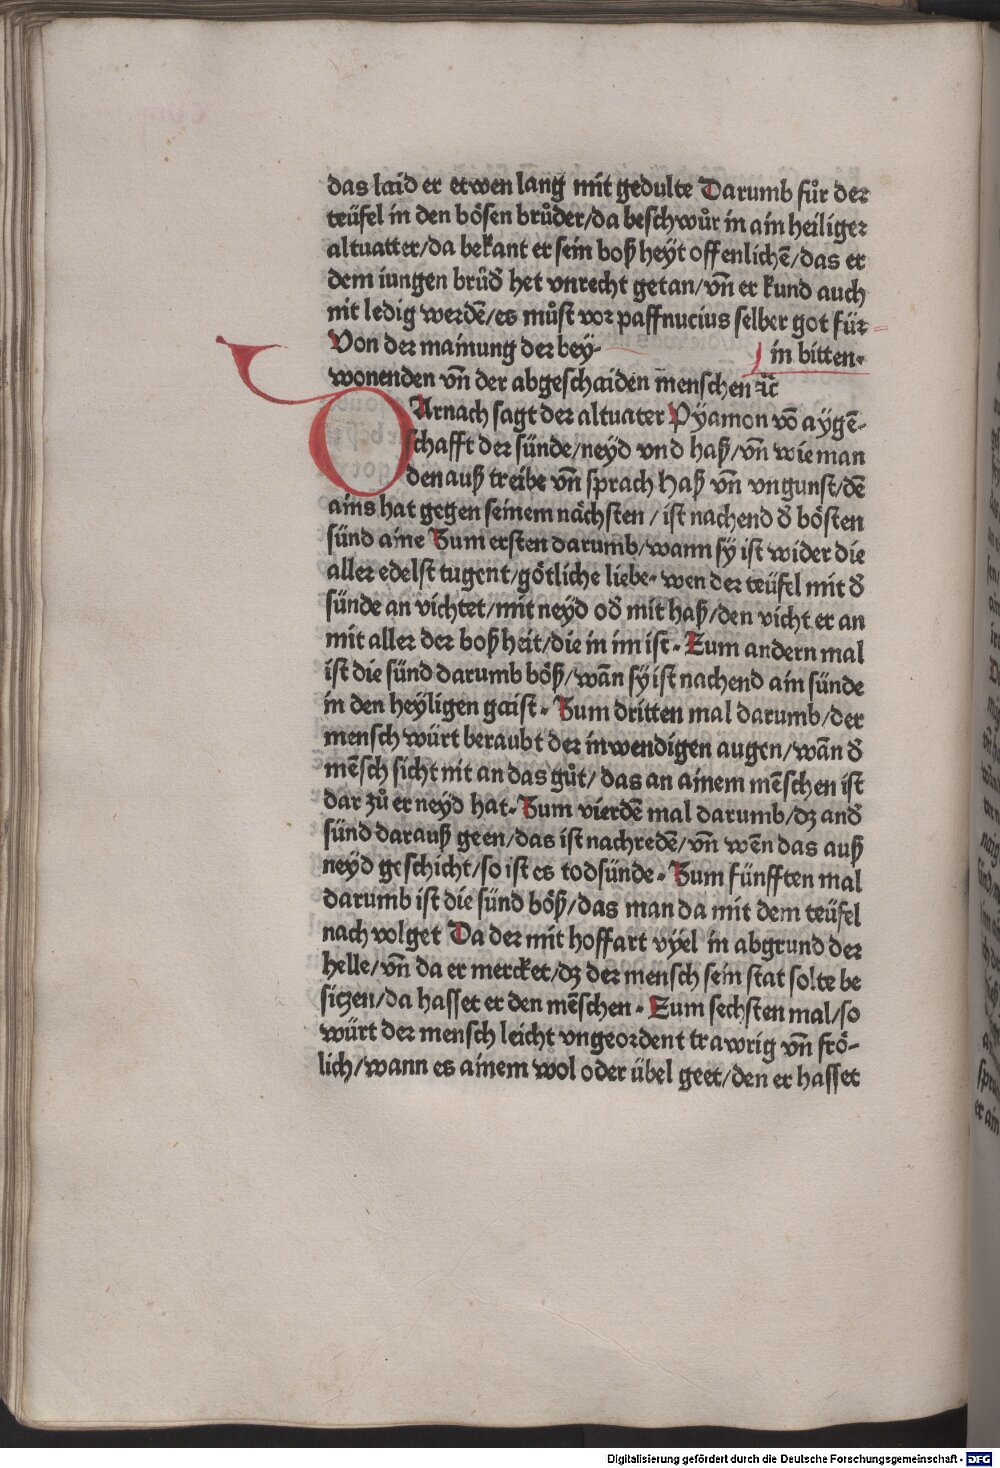 das laid er etwen lang mit gedulte Darumb fůr der
teüfel in den bösen brůder/da beschwůr in ain heiliger
altuatter/da bekant er sein boßheyt offenlichē/das er
dem iungen brůd̕ het vnrecht getan/vn̄ er kund auch
nit ledig werdē/es můst vor paffnucius selber got für
Von der mainung der bey- in bitten.
wonenden vn̄ der abgeschaiden menschen ⁊c̄
DArnach sagt der altuater Pyamon vō aygē-
schafft der sünde/neyd vnd haß/vn̄ wie man
den auß treibe vn̄ sprach Haß vn̄ vngunst/dē
ains hat gegen seinem nächsten/ist nachend d̕ bösten
sünd aine Zum ersten darumb/wann sy ist wider die
aller edelst tugent/götliche liebe. wen der teüfel mit d̕
sünde an vichtet/mit neyd od̕ mit haß/den vicht er an
mit aller der boßheit/die in im ist. Zum andern mal
ist die sünd darumb böß/wān sy ist nachend ain sünde
in den heyligen gaist. Zum dritten mal darumb/der
mensch würt beraubt der inwendigen augen/wān d̕
mēsch sicht nit an das gůt/das an ainem mēschen ist
dar zů er neyd hat. Zum vierdē mal darumb/dz and̕
sünd darauß geen/das ist nachredē/vn̄ wēn das auß
neyd geschicht/so ist es todsünde. Zum fünfften mal
darumb ist die sünd böß/das man da mit dem teüfel
nach volget Da der mit hoffart vyel in abgrund der
helle/vn̄ da er mercket/dz der mensch sein stat solte be
sitzen/da hasset er den mēschen. Zum sechsten mal/so
würt der mensch leicht vngeordent trawrig vn̄ frö-
lich/wann es ainem wol oder übel geet/den er hasset
Digitalisierung gefördert durch die Deutsche Forschungsgemeinschaft - DFG